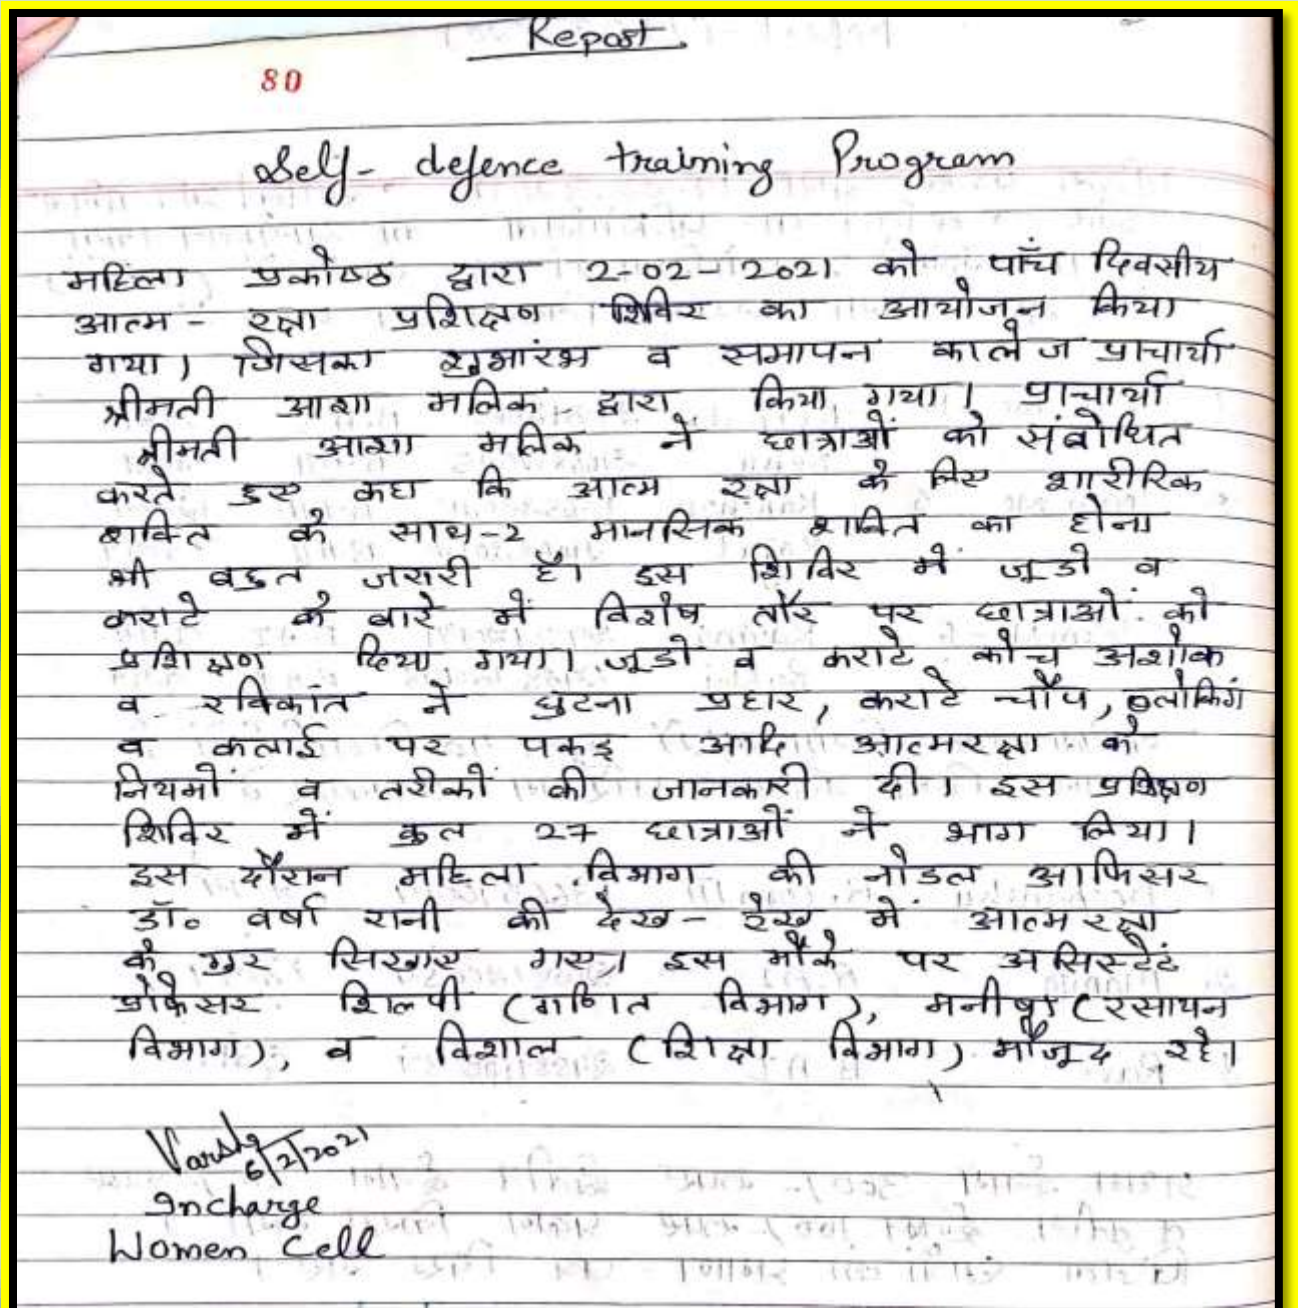 Report
80
Self- defence training Program
महिला प्रकोष्ठ द्वारा 2-02-2021 को पाँच दिवसीय
आत्म - रक्षा प्रशिक्षण शिविर का आयोजन किया
गया। जिसका शुभारंभ व समापन कालेज प्राचार्या
श्रीमती आशा मलिक द्वारा किया गया। प्राचार्या
श्रीमती आशा मलिक ने छात्राओं को संबोधित
करते हुए कहा कि आत्म रक्षा के लिए शारीरिक
शक्ति के साथ-2 मानसिक शक्ति का होना
भी बहुत जरुरी है। इस शिविर में जूडो व
कराटे के बारे में विशेष तौर पर छात्राओं को
प्रशिक्षण दिया गया। जूडो व कराटे कोच अशोक
व रविकांत ने घुटना प्रहार, कराटे चौप, ब्लोकिंग
व कलाई पर पकड़ आदि आत्मरक्षा के
नियमों व तरीकों की जानकारी दी। इस प्रशिक्षण
शिविर में कुल 27 छात्राओं ने भाग लिया।
इस दौरान महिला विभाग की नोडल आफिसर
डॉ० वर्षा रानी की देख - रेख में आत्म रक्षा
के गुर सिखाए गए। इस मौके पर असिस्टेंट
प्रोफेसर शिल्पी (गणित विभाग), मनीषा (रसायन
विभाग), व विशाल (शिक्षा विभाग) मौजूद रहे।
Varsha
6/2/2021
Incharge
Women Cell